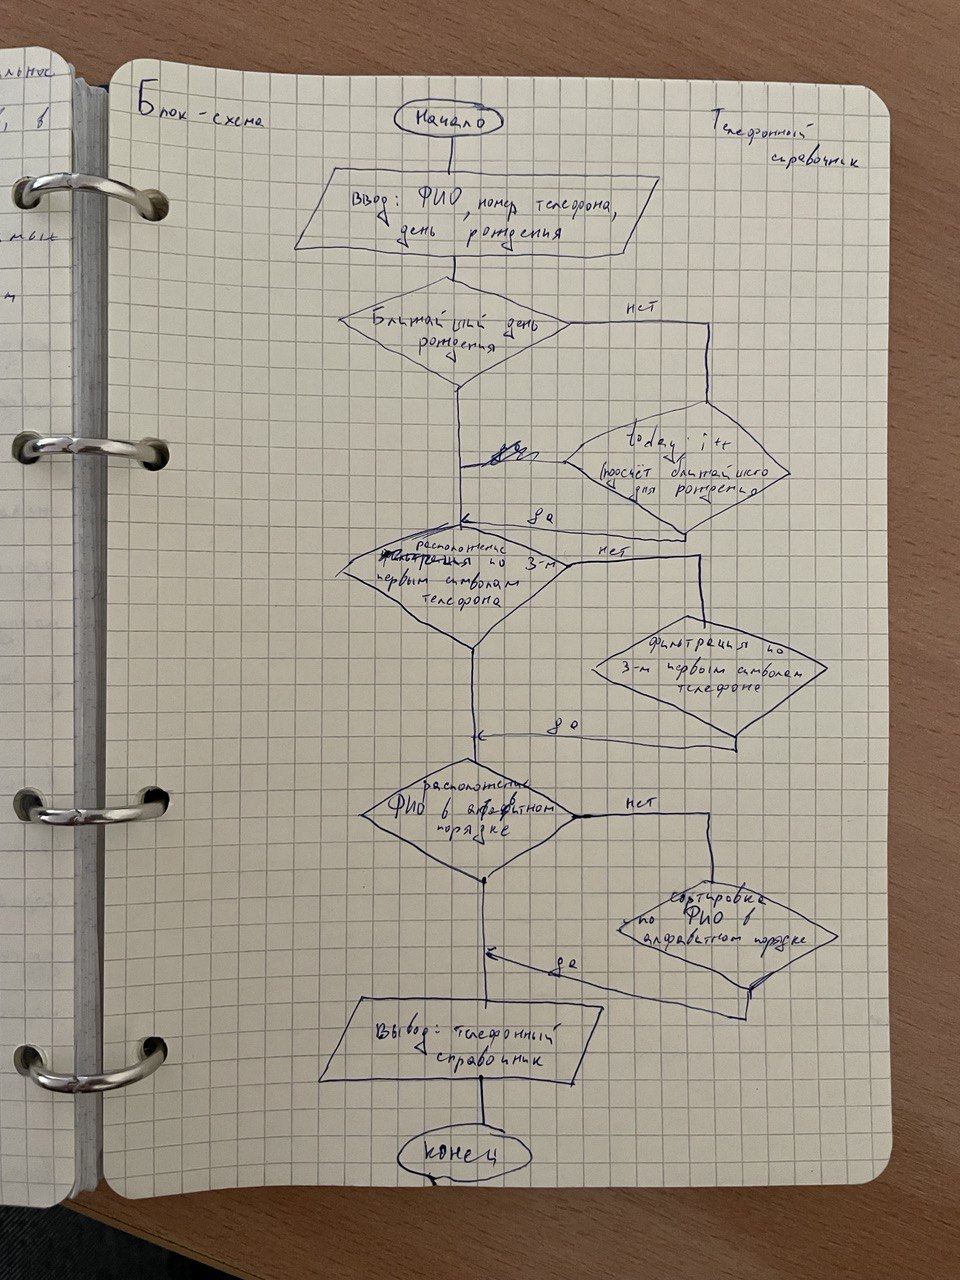 Блок-схема
Телефонный
справочник
Начало
Ввод: ФИО, номер телефона,
день рождения
Ближайший день
рождения
нет
today; i++
(подсчёт ближайшего
дня рождения
да
расположение
по 3-м
первым символам
телефона
нет
фильтрация по
3-м первым символам
телефона
да
расположение
ФИО в алфавитном
порядке
нет
сортировка
по ФИО в
алфавитном порядке
да
Вывод: телефонный
справочник
конец